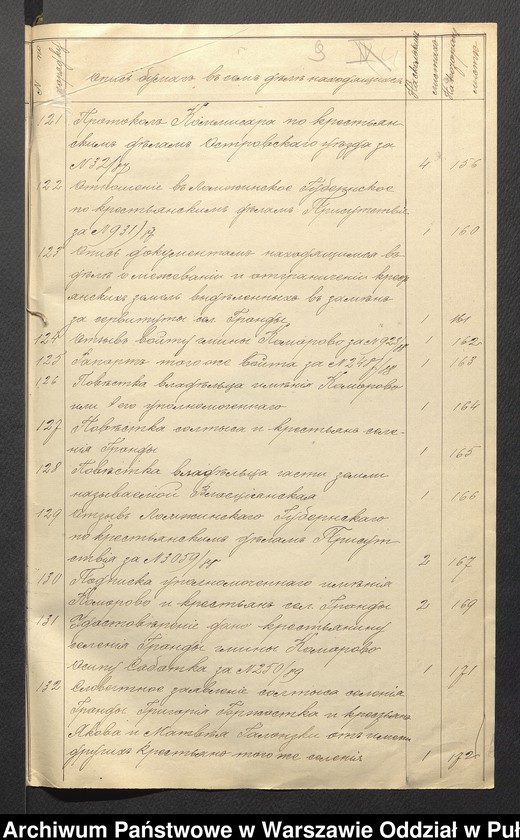 №
по порядку
Опись бумагъ въ семъ дѣлѣ находящихся
На сколькихъ листахъ
На которомъ листѣ
121 Протоколъ Коммисара по крестьян-
скимъ дѣламъ Островскаго уѣзда за
№ 32/ 4 156
122 Отношеніе въ Ломжинское Губернское
по крестьянскимъ дѣламъ Присутствіе
за № 931/ 1 160
123 Опись документамъ находящимся въ
дѣлѣ о межеваніи и отграниченіи крест
янскихъ земель выдѣленныхъ въ замѣнъ
за сервитуты сел. Гронды 1 161
124 Отзывъ войту гмины Комарово за № 923/ 1 162
125 Рапортъ того же войта за № 1 163
126 Повѣстка владѣльца имѣнія Комарово
или его уполномоченнаго 1 164
127 Повѣстка солтыса и крестьянъ селе-
нія Гронды 1 165
128 Повѣстка владѣльца части земли
называемой 1 166
129 Отзывъ Ломжинскаго Губернскаго
по крестьянскимъ дѣламъ Присут-
ствія за № 3059/ 2 167
130 Подписка уполномоченнаго имѣнія
Комарово и крестьянъ сел. Гронды 2 169
131 Удостовѣреніе дано крестьянину
селенія Гронды гмины Комарово
Осипу Сабатка за № 250/ 1 171
132 Словестное заявленіе солтыса селенія
Гронды Григорія и крестьянъ
Якова и Матвѣя отъ имени
другихъ крестьянъ того же селенія 1 172
Archiwum Państwowe w Warszawie Oddział w Puł